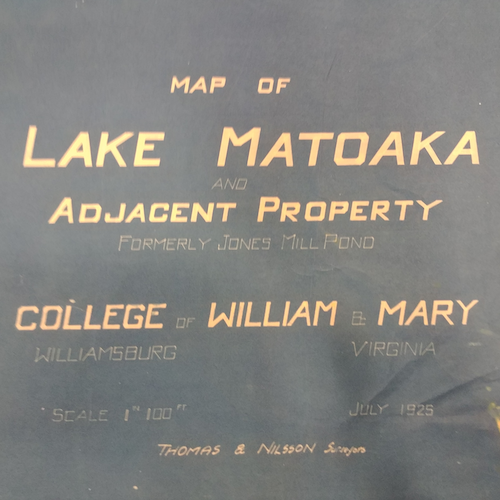 MAP OF
LAKE MATOAKA
AND
ADJACENT PROPERTY
FORMERLY JONES MILL POND
COLLEGE OF WILLIAM & MARY
WILLIAMSBURG VIRGINIA
SCALE 1" 100 FT JULY
THOMAS & NILSSON Surveyors